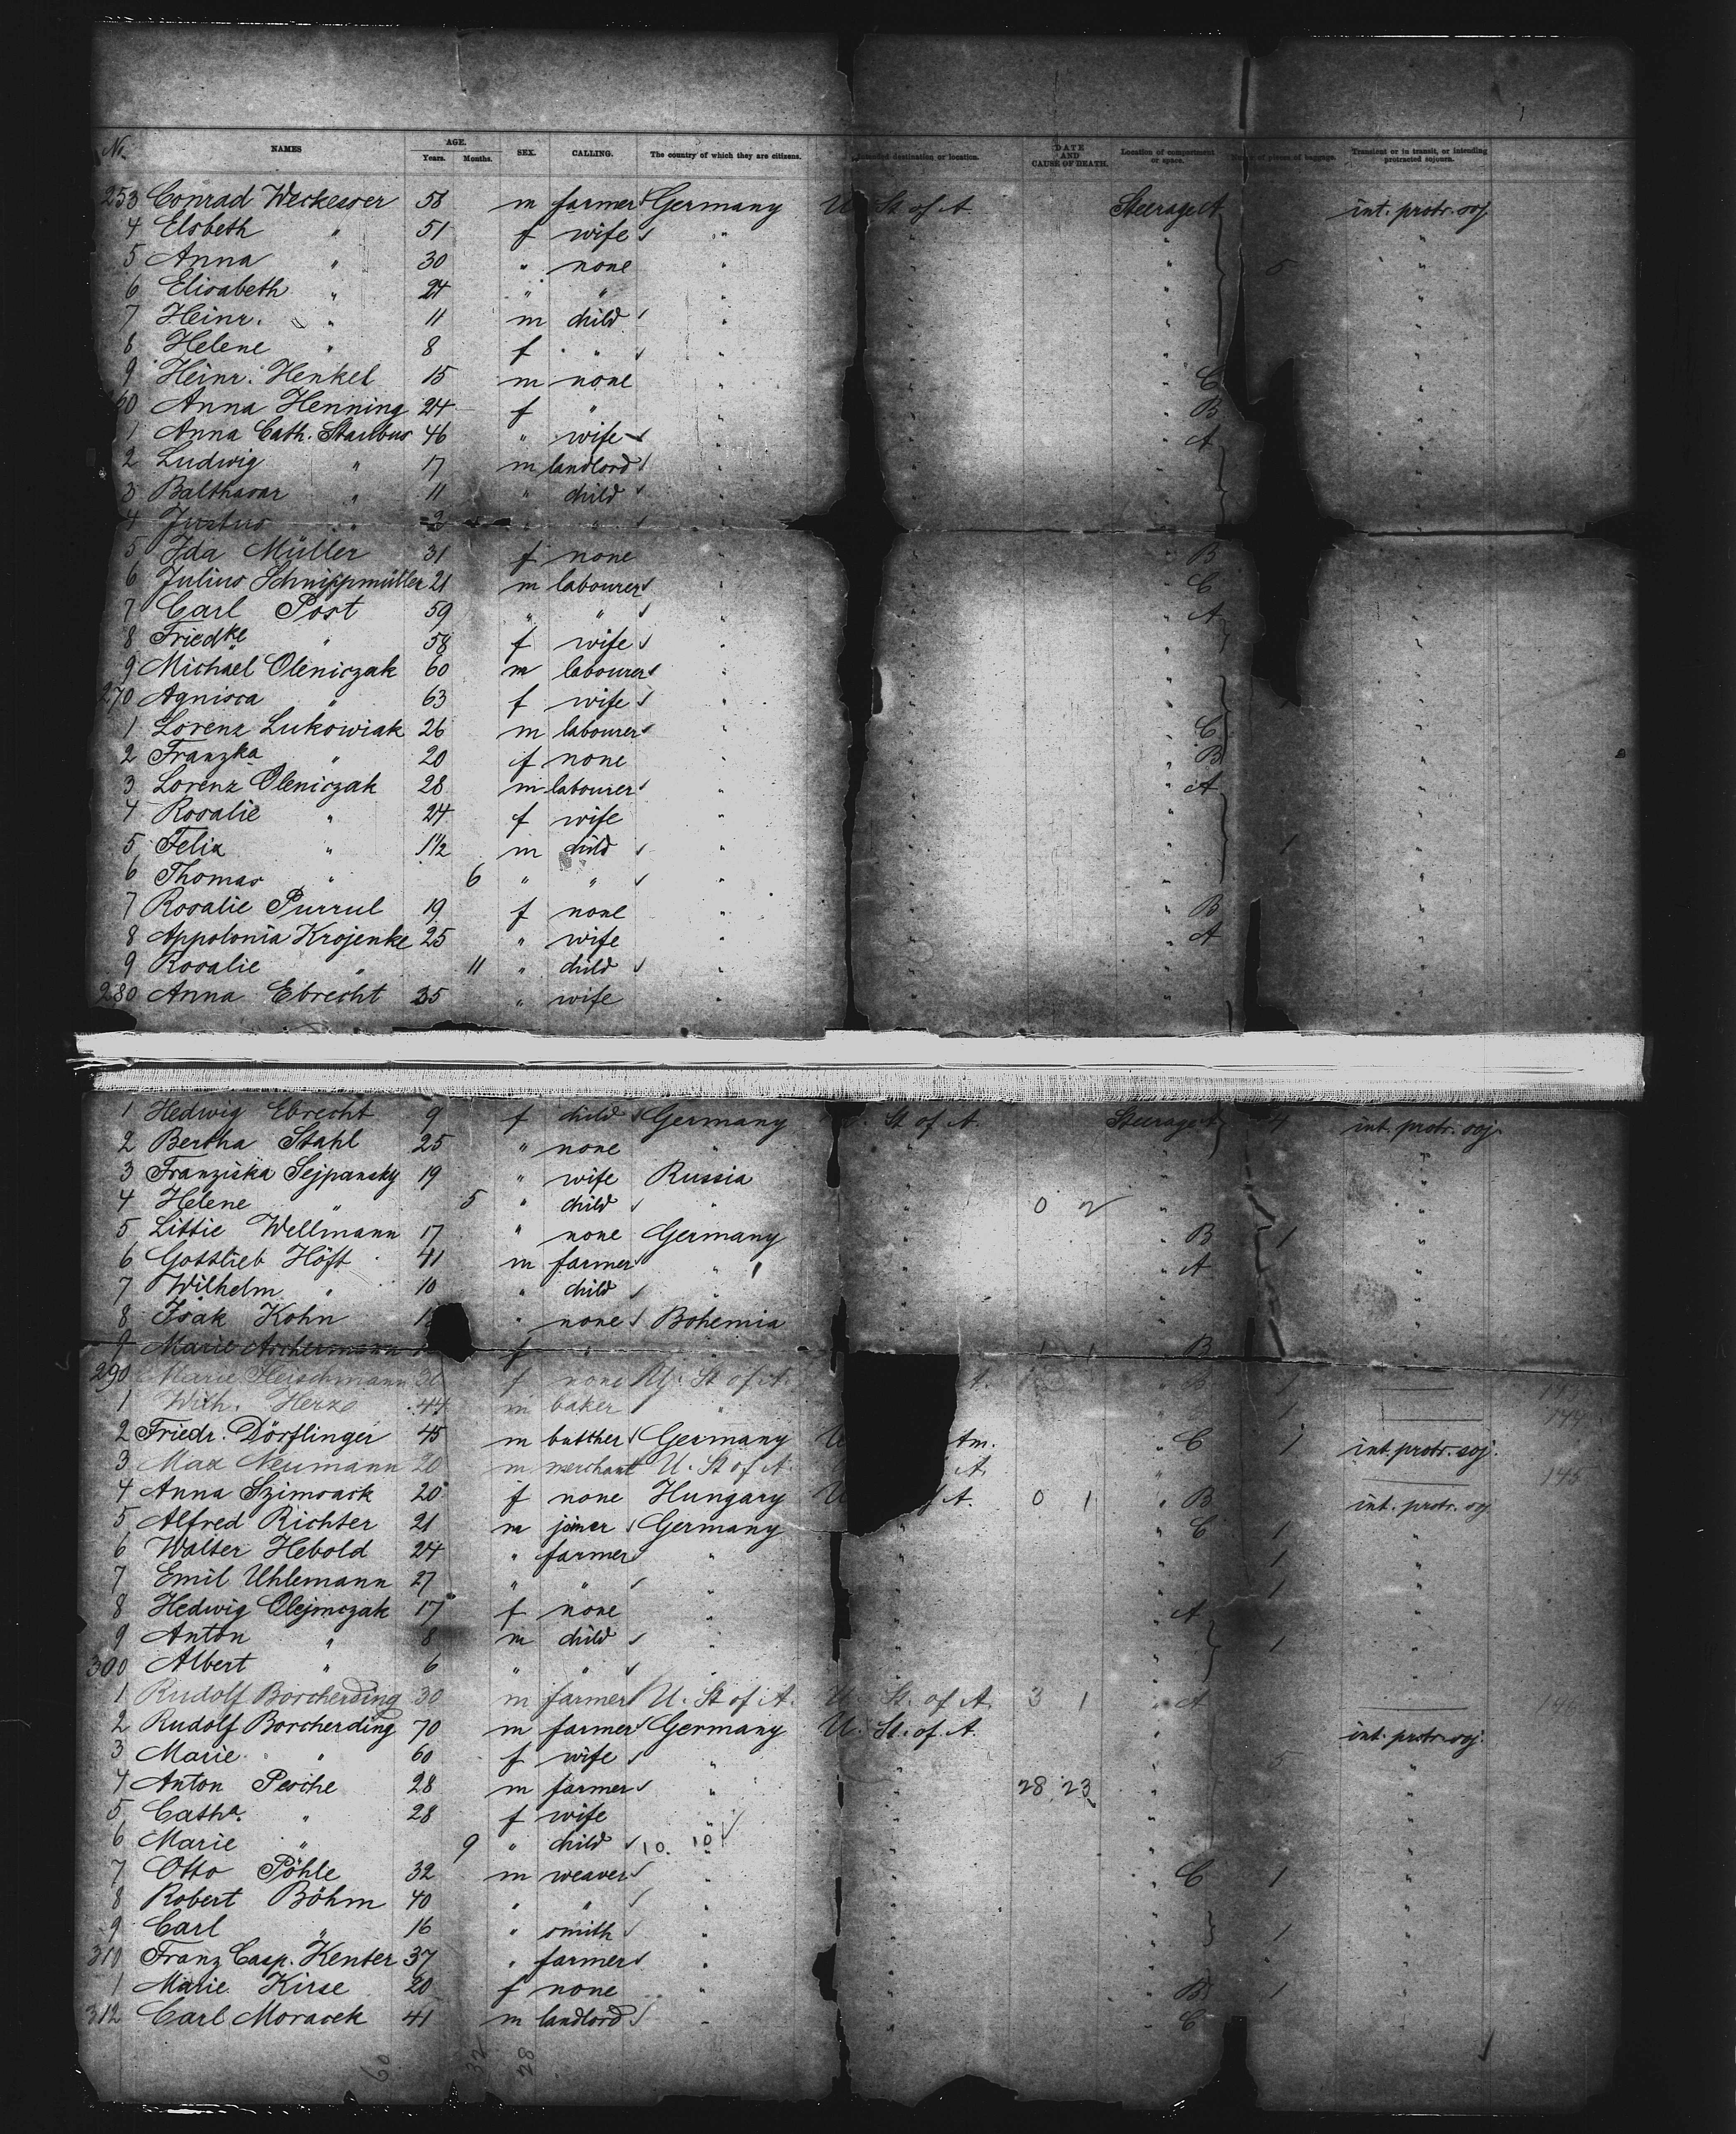 No. NAMES AGE. Years. Months. SEX. CALLING. The country of which they are citizens. Intended destination or location. DATE AND CAUSE OF DEATH. Location of compartment or space. of pieces of baggage. Transient or in transit, or intending protracted sojourn.
253 Conrad Weckesser 58 m farmer Germany U St of A Steerage A int. protr. soj.
4 Elsbeth " 51 f wife " " " "
5 Anna " 30 " none " " " 5 "
6 Elisabeth " 24 " " " " " "
7 Heinr. " 11 m child " " " "
8 Helene " 8 f " " " " "
9 Heinr. Henkel 15 m none " " " C "
60 Anna Henning 24 f " " " " B "
1 Anna Cath. 46 " wife " " " A "
2 Ludwig " 17 m landlord " " " "
3 Balthasar " 11 " child " " " "
4 Justus " " " " " " "
5 Ida Müller 31 f none " " " B "
6 Julius Schnippmüller 21 m labourer " " " C "
7 Carl Post 59 " " " " " A "
8 Friedke " 58 f wife " " " "
9 Michael Oleniczak 60 m labourer " " " "
270 Agnisca " 63 f wife " " " "
1 Lorenz Lukowiak 26 m labourer " " " C "
2 Franzka " 20 f none " " " B "
3 Lorenz Oleniczak 28 m labourer " " " A "
4 Rosalie " 24 f wife " " " "
5 Felix " 1 1/2 m child " " " 1 "
6 Thomas " 6 " " " " " "
7 Rosalie Purrul 19 f none " " " B "
8 Appolonia Krojenke 25 " wife " " " A "
9 Rosalie " 11 " child " " " "
280 Anna Ebrecht 35 " wife " " " "
1 Hedwig Ebrecht 9 f child Germany U. St of A. Steerage A 4 int. protr. soj.
2 Bertha Stahl 25 " none " " " "
3 Franziska Sejpansky 19 " wife Russia " " "
4 Helene " 5 " child " " 0 2 " "
5 Littie Wellmann 17 " none Germany " " B 1 "
6 Gottlieb Höft 41 m farmer " " " A "
7 Wilhelm " 10 " child " " " "
8 Isak Kohn none Bohemia " " "
9 Marie Aschermann f " " 1 1 " B
290 Marie Fleischmann f none U. St of A. A. " B 1
1 Wilh. Herze 44 m baker " " 1 144
2 Friedr. Dörflinger 45 m butcher Germany U Am. " C 1 int. protr. soj.
3 Max Neumann 20 m merchant U. St of A. A. " 145
4 Anna Szimsack 20 f none Hungary U of A. 0 1 " B int. protr. soj.
5 Alfred Richter 21 m joiner Germany " " C 1 "
6 Walter Hebold 24 " farmer " " " 1 "
7 Emil Uhlemann 27 " " " " " 1 "
8 Hedwig Olejniczak 17 f none " " A "
9 Anton " 8 m child " " " 1 "
300 Albert " 6 " " " " " "
1 Rudolf Borcherding 30 m farmer U. St of A. U. St. of A. 3 1 " A 146
2 Rudolf Borcherding 70 m farmer Germany U. St. of A. " int. protr. soj.
3 Marie " 60 f wife " " " 5 "
4 Anton Pesche 28 m farmer " " 28 23 " "
5 Catha. " 28 f wife " " " "
6 Marie " 9 " child 10 10 " " "
7 Otto Pöhle 32 m weaver " " " C 1 "
8 Robert Böhm 40 " " " " " "
9 Carl " 16 " smith " " " 1 "
310 Franz Casp. Kenter 37 " farmer " " " "
1 Marie Kirse 20 f none " " " B 1 "
312 Carl Moracek 41 m landlord " " " C "
60 32 28